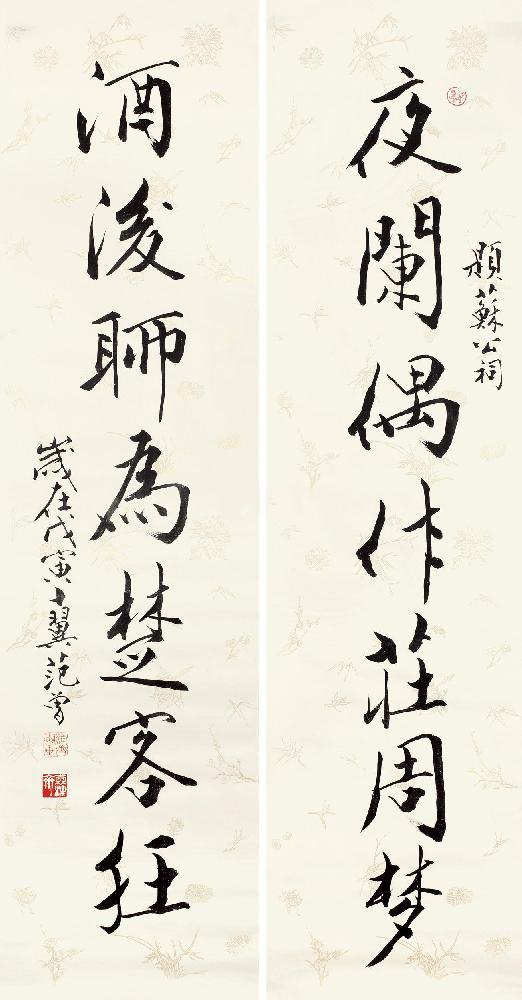 題蘇公祠
夜闌偶作莊周梦
酒後聊為楚客狂
歲在戊寅十翼范曾